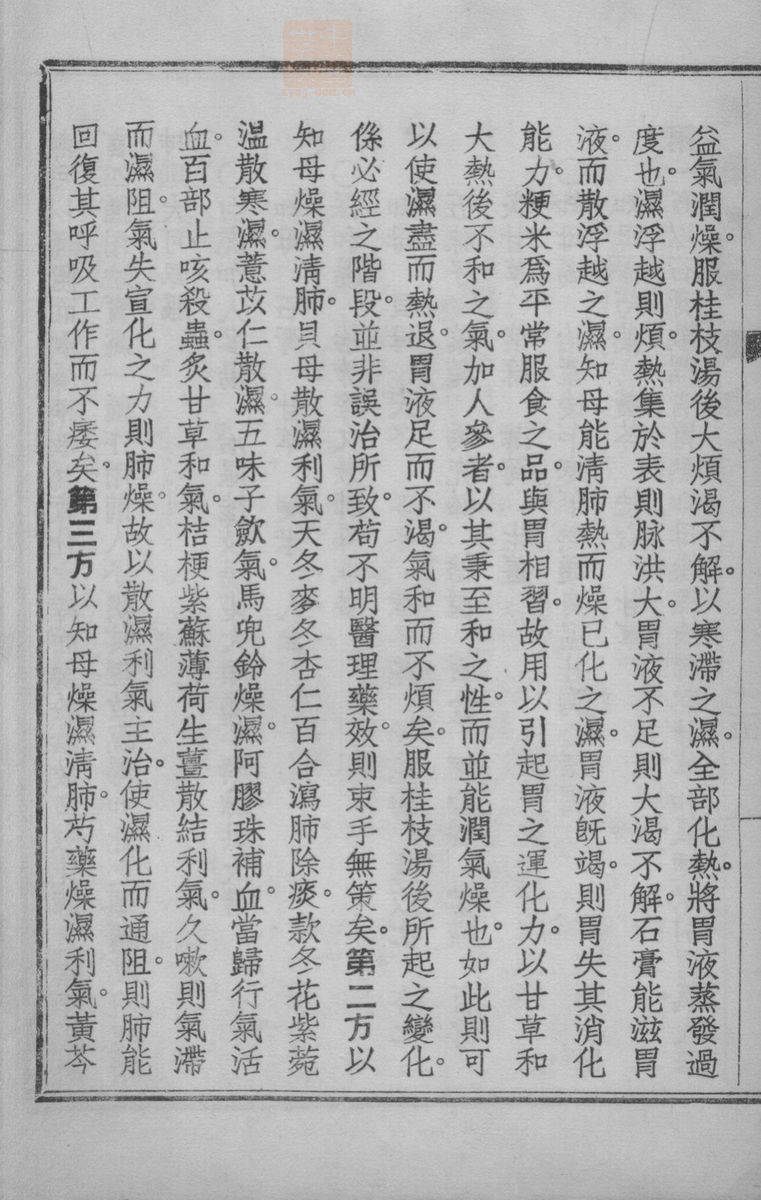 益氣潤燥。服桂枝湯後大煩渴不解。以寒滯之濕。全部化熱。將胃液蒸發過
度也。濕浮越則煩。熱集於表則脉洪大。胃液不足則大渴不解。石膏能滋胃
液。而散浮越之濕。知母能清肺熱而燥已化之濕。胃液旣竭。則胃失其消化
能力。粳米爲平常服食之品。與胃相習。故用以引起胃之運化力。以甘草和
大熱後不和之氣。加人參者。以其秉至和之性。而並能潤氣燥也。如此則可
以使濕盡而熱退。胃液足而不渴。氣和而不煩矣。服桂枝湯後所起之變化。
係必經之階段。並非誤治所致。苟不明醫理藥效。則束手無策矣。第二方以
知母燥濕淸肺。貝母散濕利氣。天冬麥冬杏仁百合瀉肺除痰。款冬花紫菀
温散寒濕。薏苡仁散濕。五味子歛氣。馬兜鈴燥濕。阿膠珠補血。當歸行氣活
血。百部止咳殺蟲。炙甘草和氣。桔梗紫蘇薄荷生薑散結利氣。久嗽則氣滯
而濕阻。氣失宣化之力則肺燥。故以散濕利氣主治。使濕化而通阻。則肺能
回復其呼吸工作而不痿矣。第三方以知母燥濕淸肺。芍藥燥濕利氣。黃芩